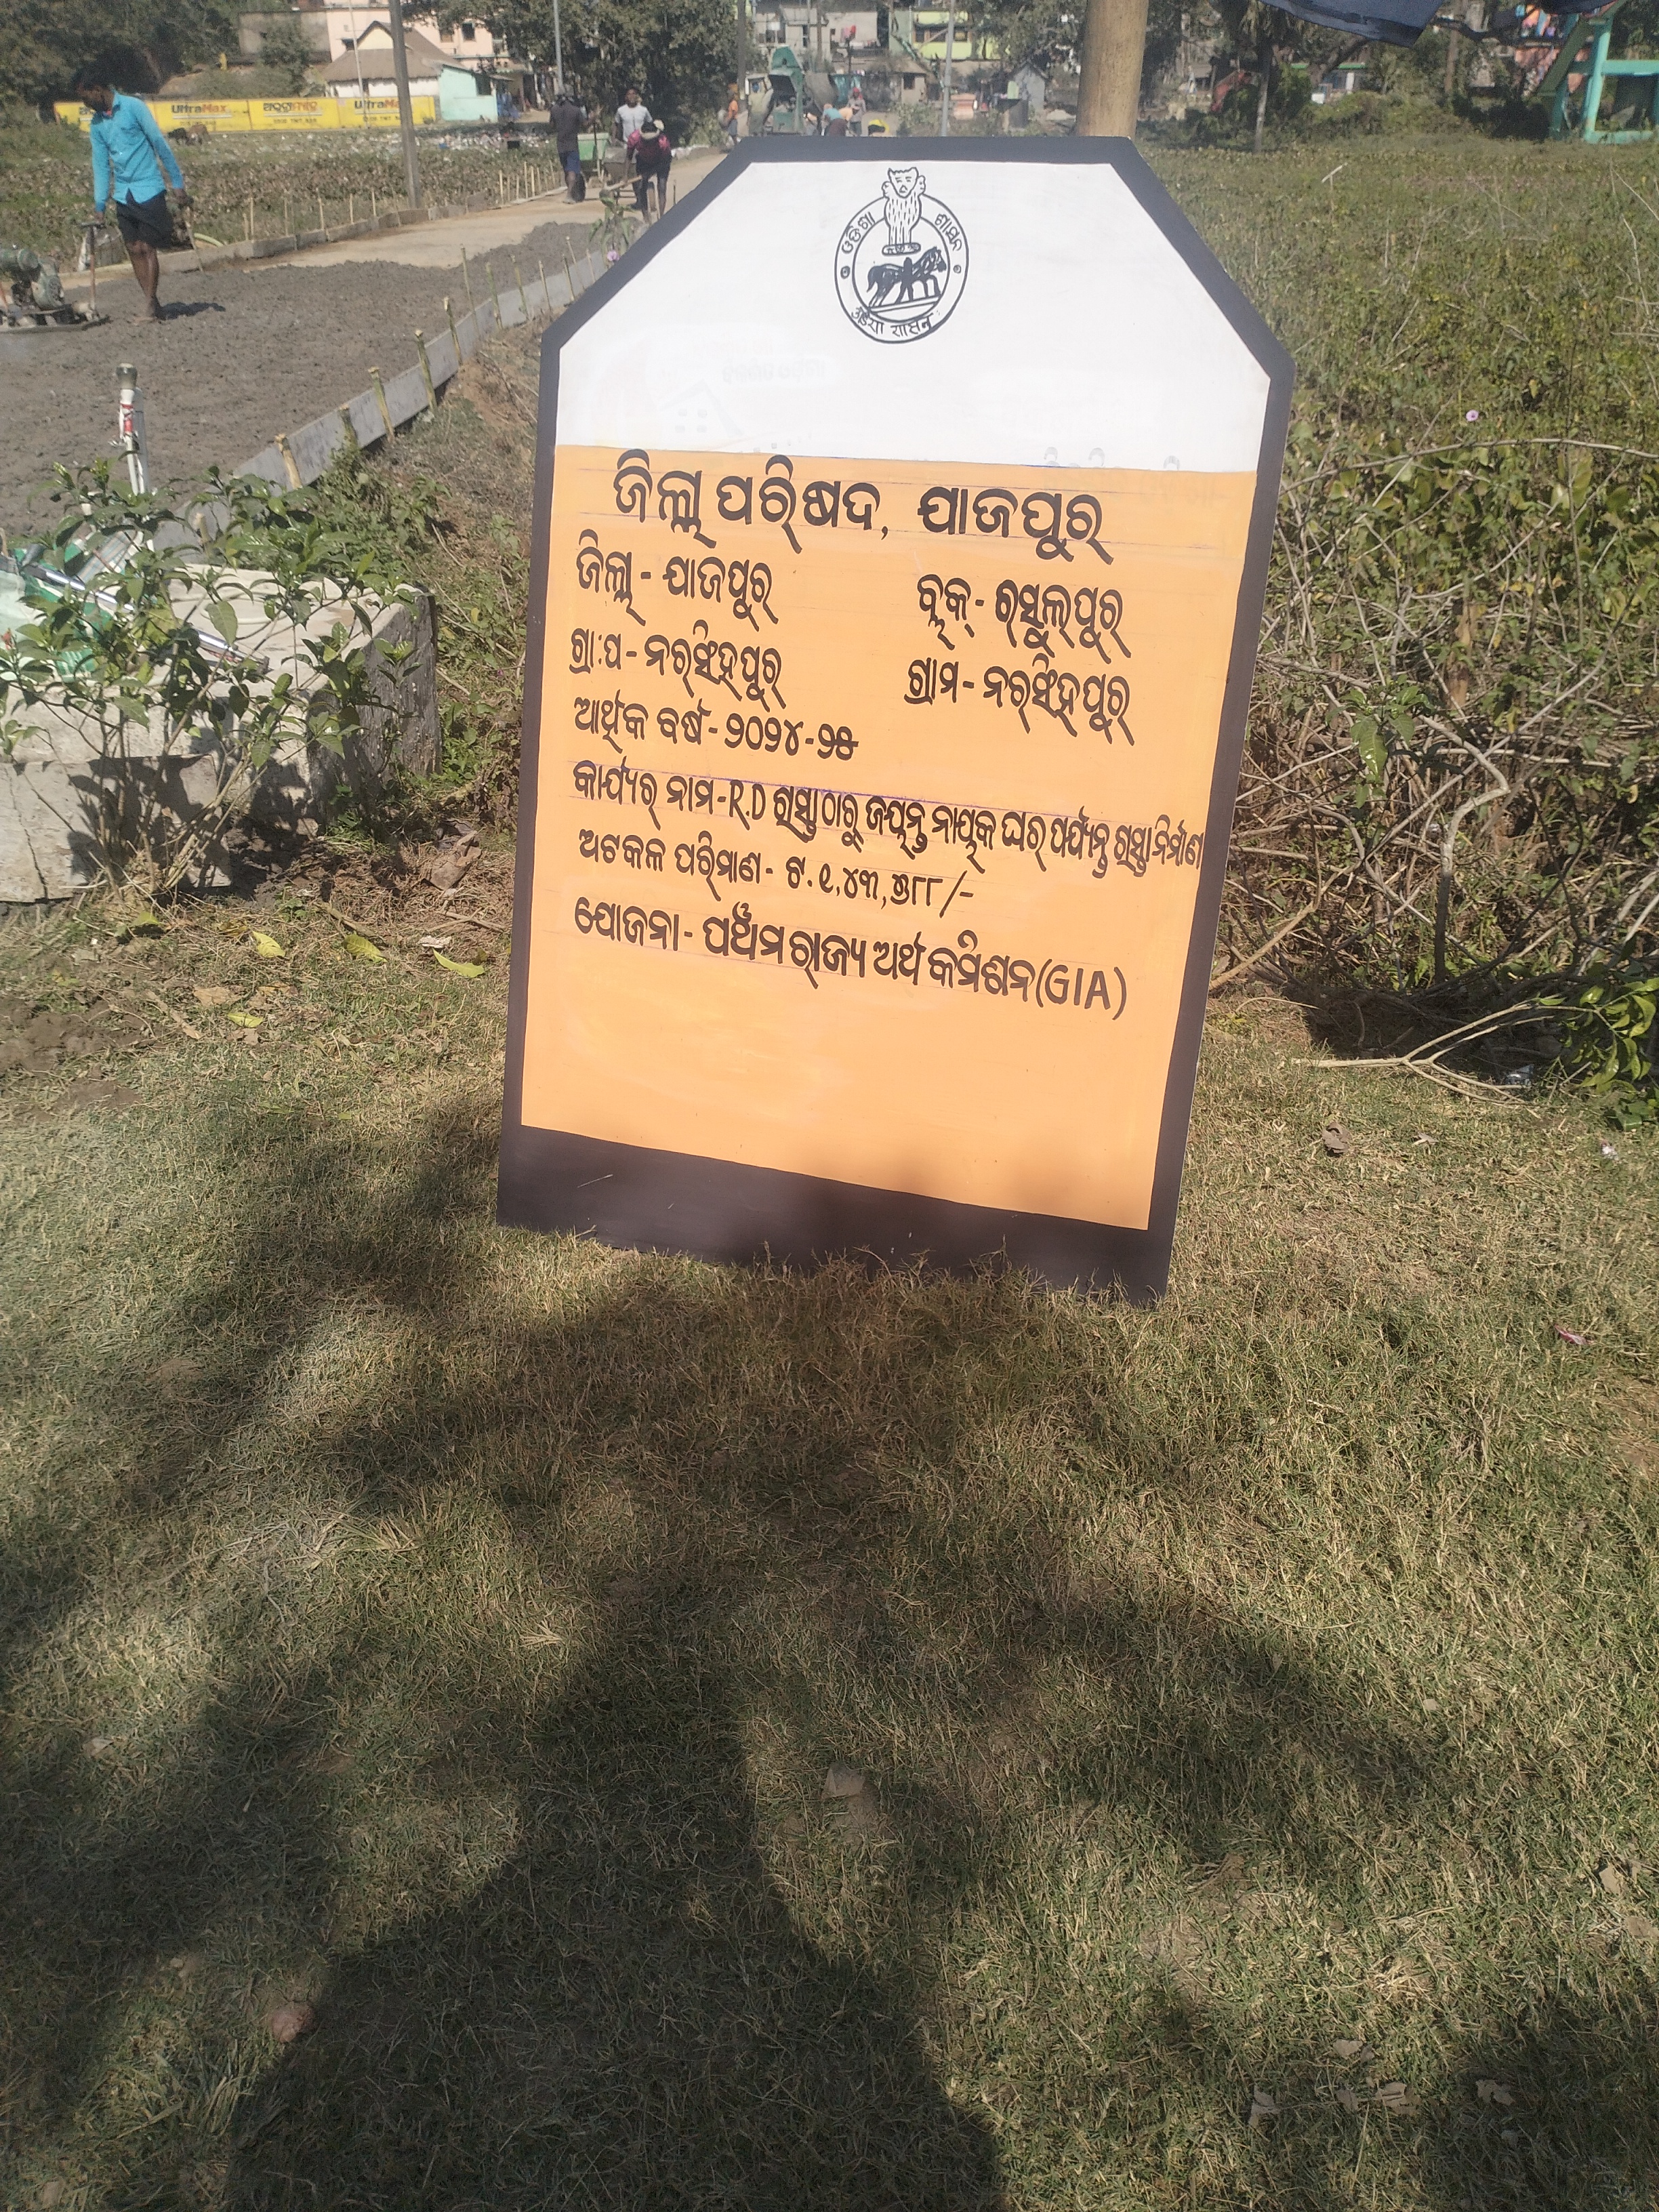 UltraMax ଅଲ୍ଟ୍ରାମାକ୍ସ UltraMax
ଓଡ଼ିଶା ଶାସନ
ଜିଲ୍ଲା ପରିଷଦ, ଯାଜପୁର
ଜିଲ୍ଲା - ଯାଜପୁର ବ୍ଲକ - ରସୁଲପୁର
ଗ୍ରା:ପ - ନରସିଂହପୁର ଗ୍ରାମ - ନରସିଂହପୁର
ଆର୍ଥିକ ବର୍ଷ - ୨୦୨୪-୨୫
କାର୍ଯ୍ୟର ନାମ - R.D ରାସ୍ତାଠାରୁ ଜୟନ୍ତ ନାୟକ ଘର ପର୍ଯ୍ୟନ୍ତ ରାସ୍ତା ନିର୍ମାଣ
ଅଟକଳ ପରିମାଣ - ଟ. ୧,୪୩,୭୮୮/-
ଯୋଜନା - ପଞ୍ଚମ ରାଜ୍ୟ ଅର୍ଥ କମିଶନ (GIA)